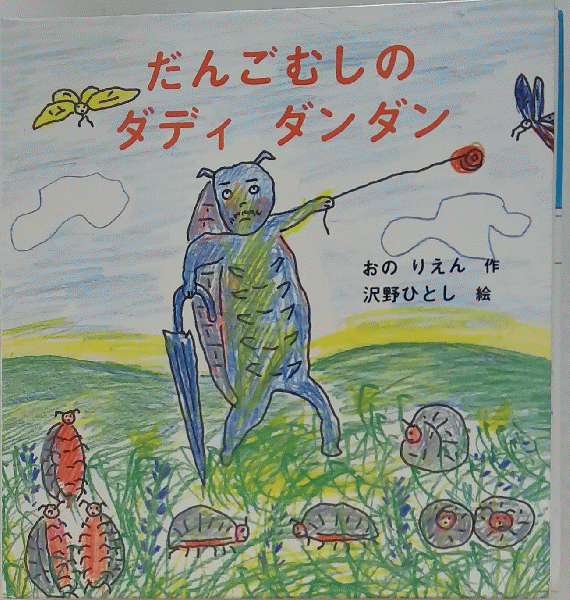 だんごむしの
ダディ ダンダン
おの りえん 作
沢野ひとし 絵